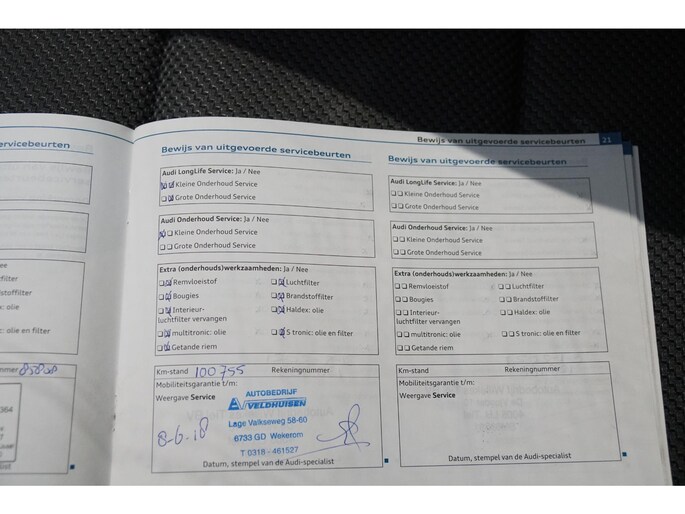 Bewijs van uitgevoerde servicebeurten 21
ervicebeurten
ee
filter
stoffilter
x: olie
: olie en filter
mmer
364
Bewijs van uitgevoerde servicebeurten
Audi LongLife Service: Ja / Nee
Kleine Onderhoud Service
Grote Onderhoud Service
Audi Onderhoud Service: Ja / Nee
Kleine Onderhoud Service
Grote Onderhoud Service
Extra (onderhouds)werkzaamheden: Ja / Nee
Remvloeistof Luchtfilter
Bougies Brandstoffilter
Interieur- Haldex: olie
luchtfilter vervangen
multitronic: olie S tronic: olie en filter
Getande riem
Km-stand 100755 Rekeningnummer
Mobiliteitsgarantie t/m:
Weergave Service
AUTOBEDRIJF
VELDHUISEN
Lage Valkseweg 58-60
6733 GD Wekerom
T 0318 - 461527
8-6-18
Datum, stempel van de Audi-specialist
Bewijs van uitgevoerde servicebeurten
Audi LongLife Service: Ja / Nee
Kleine Onderhoud Service
Grote Onderhoud Service
Audi Onderhoud Service: Ja / Nee
Kleine Onderhoud Service
Grote Onderhoud Service
Extra (onderhouds)werkzaamheden: Ja / Nee
Remvloeistof Luchtfilter
Bougies Brandstoffilter
Interieur- Haldex: olie
luchtfilter vervangen
multitronic: olie S tronic: olie en filter
Getande riem
Km-stand Rekeningnummer
Mobiliteitsgarantie t/m:
Weergave Service
Datum, stempel van de Audi-specialist